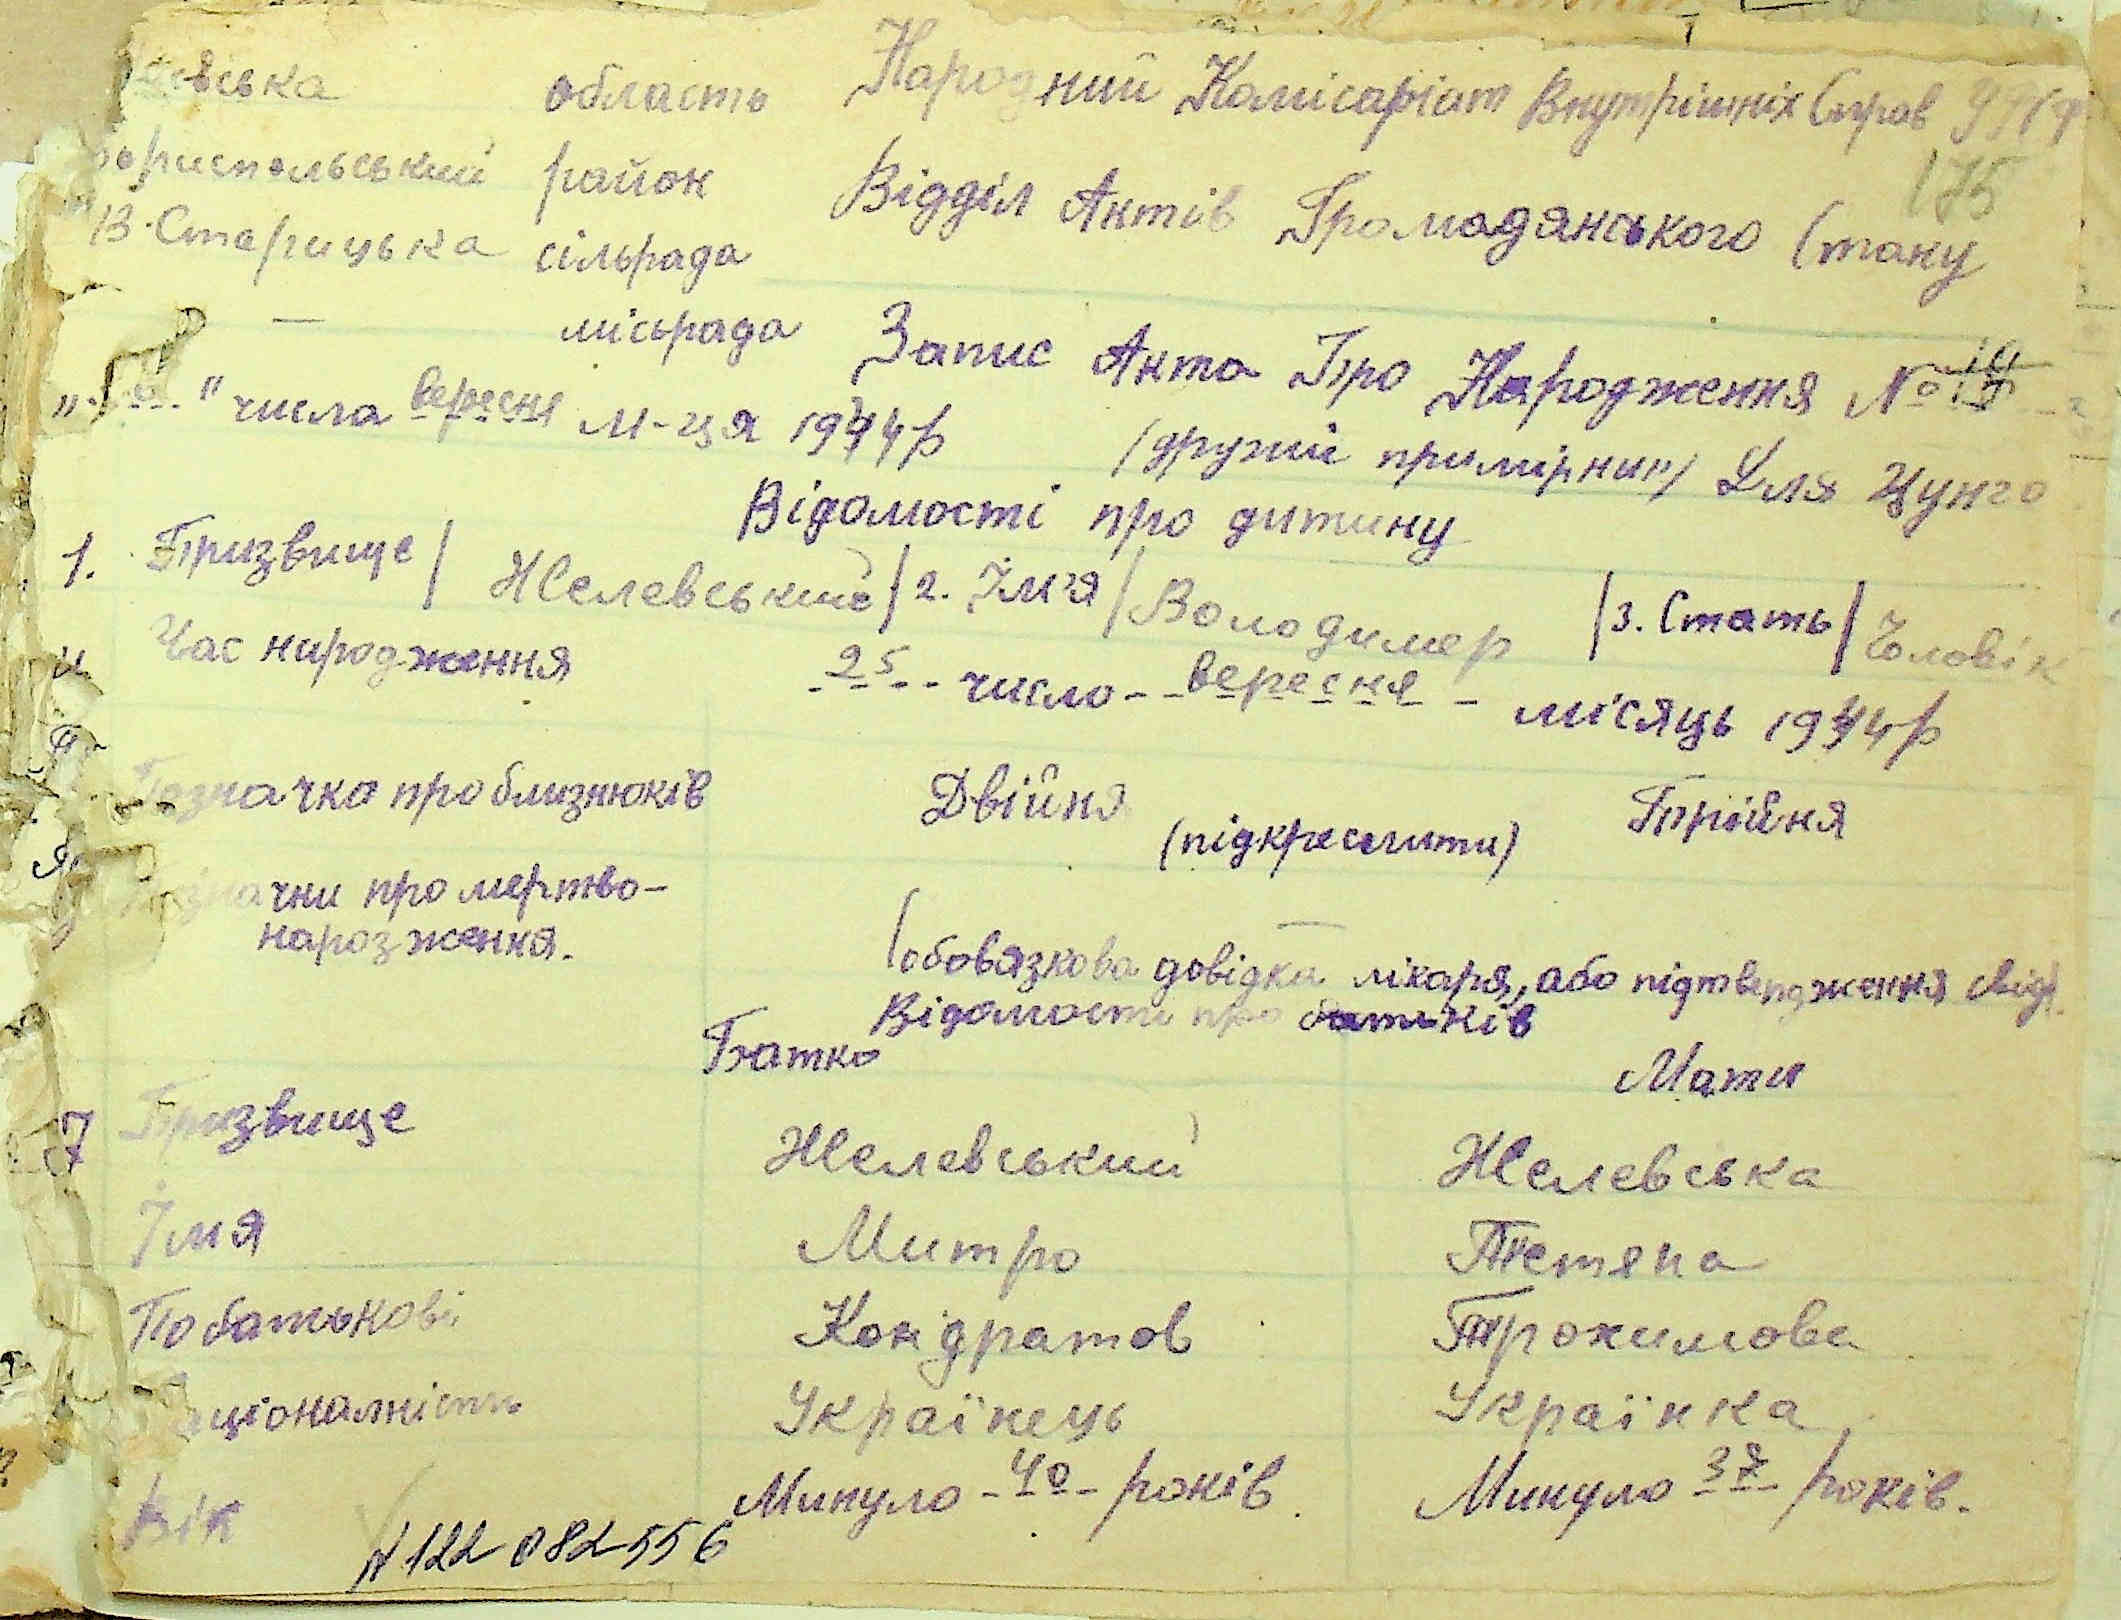 область Народний Комісаріат Внутрішніх Справ
175
Бориспольський район Відділ Актів Громадянського Стану
В-Старицька сільрада
— міськрада Запис Акта Про Народження №
числа вересня м-ця 1944р (другий примірник) Для Цунго
Відомості про дитину
1. Призвище / Желевський / 2. Їм'я / Володимер / 3. Стать / Чоловік
4. Час народження 25 число вересня місяць 1944р
Позначка про близнюків Двійня (підкреслити) Трійня
Позначки про мертво-
нарозження. —
(обовязкова довідка лікаря, або підтвердження свід.
Відомости про батьків
Батько Мати
7 Призвище Желевський Желевська
Їмя Митро Тетяна
По батькові Кондратов Трохимова
Націоналність Українець Українка
Вік Минуло - 40 - років. Минуло 37 років.
N122082556